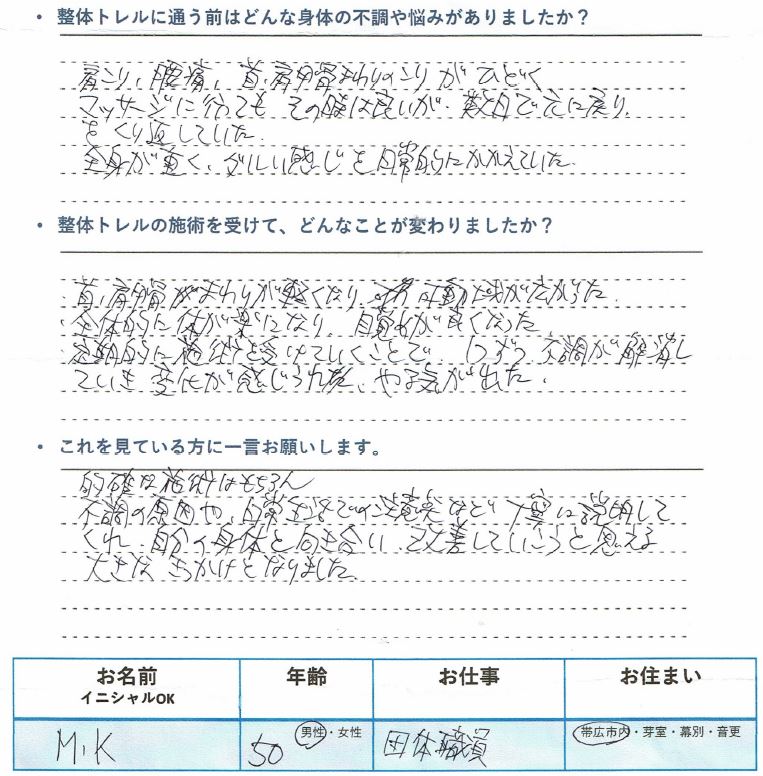 ・ 整体トレルに通う前はどんな身体の不調や悩みがありましたか？
肩こり、腰痛、首、肩甲骨まわりのこりがひどく
マッサージに行っても その時は良いが、数日で元に戻り、
をくり返していた。
全身が重く、ダルい感じを日常的にかかえていた。
・ 整体トレルの施術を受けて、どんなことが変わりましたか？
首、肩甲骨がまわりが軽くなり、可動域が広がった。
全体的に体が楽になり、目覚めが良くなった
定期的に施術を受けていくことで、1つずつ 不調が解消し
ていき 変化が感じられた、やる気が出た。
・ これを見ている方に一言お願いします。
的確な施術はもちろん
不調の原因や、日常生活での注意点など 丁寧に説明して
くれ、自分の身体と向き合い、改善していこうと思える
大きな きっかけとなりました。
お名前 年齢 お仕事 お住まい
イニシャルOK
M.K 50 男性・女性 団体職員 帯広市内・芽室・幕別・音更